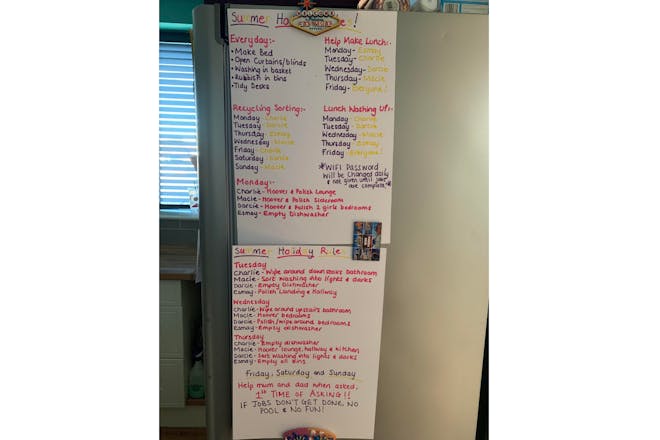 Summer Holiday Rules!
Everyday:-
• Make Bed
• Open Curtains/blinds
• Washing in basket
• Rubbish in bins
• Tidy Desks
Help Make Lunch:-
Monday - Esmay
Tuesday - Charlie
Wednesday - Darcie
Thursday - Macie
Friday - Everyone!
Recycling Sorting:-
Monday - Charlie
Tuesday - Darcie
Thursday - Esmay
Wednesday - Macie
Friday - Charlie
Saturday - Darcie
Sunday - Macie
Lunch Washing Up:-
Monday - Charlie
Tuesday - Darcie
Wednesday - Macie
Thursday - Esmay
Friday - Everyone!
*WIFI Password
Will be changed daily
& not given until jobs
are complete*
Monday:-
Charlie - Hoover & Polish Lounge
Macie - Hoover & Polish
Darcie - Hoover & Polish 2 girls bedrooms
Esmay - Empty Dishwasher
Summer Holiday Rules
Tuesday
Charlie - Wipe around downstairs bathroom
Macie - Sort washing into lights & darks
Darcie - Empty Dishwasher
Esmay - Polish Landing & Hallway
Wednesday
Charlie - Wipe around upstairs bathroom
Macie - Hoover bedrooms
Darcie - Polish/wipe around bedrooms
Esmay - Empty dishwasher
Thursday
Charlie - Empty dishwasher
Macie - Hoover lounge, hallway & kitchen
Darcie - Sort washing into lights & darks
Esmay - Empty all bins
Friday, Saturday and Sunday
Help mum and dad when asked,
1st TIME OF ASKING!!
IF JOBS DON'T GET DONE, NO
POOL & NO FUN!